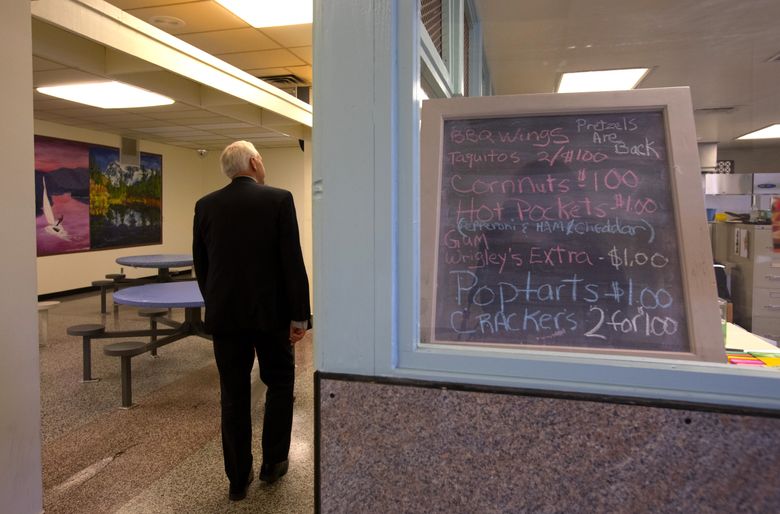 BBQ Wings Pretzels
Are
Back
Taquitos 2/$1.00
Cornnuts $1.00
Hot Pockets $1.00
(Pepperoni & HAM & Cheddar)
Gum
Wrigley's Extra - $1.00
Poptarts $1.00
CRACKers 2 for $1.00